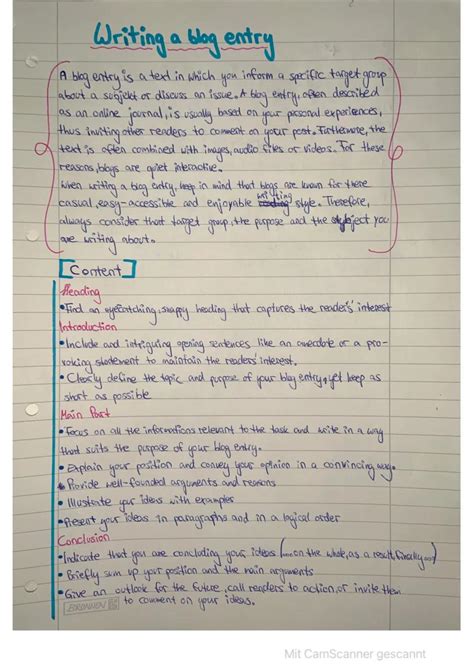 Writing a blog entry
A blog entry is a text in which you inform a specific target group
about a subjekt or discuss an issue. A blog entry, often described
as an online journal, is usually based on your personal experiences,
thus inviting other readers to comment on your post. Furthermore, the
text is often combined with images, audio files or videos. For these
reasons, blogs are quiet interactive.
When writing a blog entry, keep in mind that blogs are known for there
casual, easy-accessible and enjoyable writing style. Therefore,
always consider that target group, the purpose and the subject you
are writing about.
[Content]
Heading
• Find an eyecatching, snappy heading that captures the reader's interest
Introduction
• Include and intriguing opening sentences like an anecdote or a pro-
voking statement to maintain the readers' interest.
• Clearly define the topic and purpose of your blog entry, yet keep as
short as possible
Main Part
• Focus on all the informations relevant to the task and write in a way
that suits the purpose of your blog entry.
• Explain your position and convey your opinion in a convincing way.
• Provide well-founded arguments and reasons
• Illustrate your ideas with examples
• Present your ideas in paragraphs and in a logical order
Conclusion
• Indicate that you are concluding your ideas (on the whole, as a result, finally
• Briefly sum up your position and the main arguments
• Give an outlook for the future, call renders to action, or invite them
to comment on your ideas.
Mit CamScanner gescannt